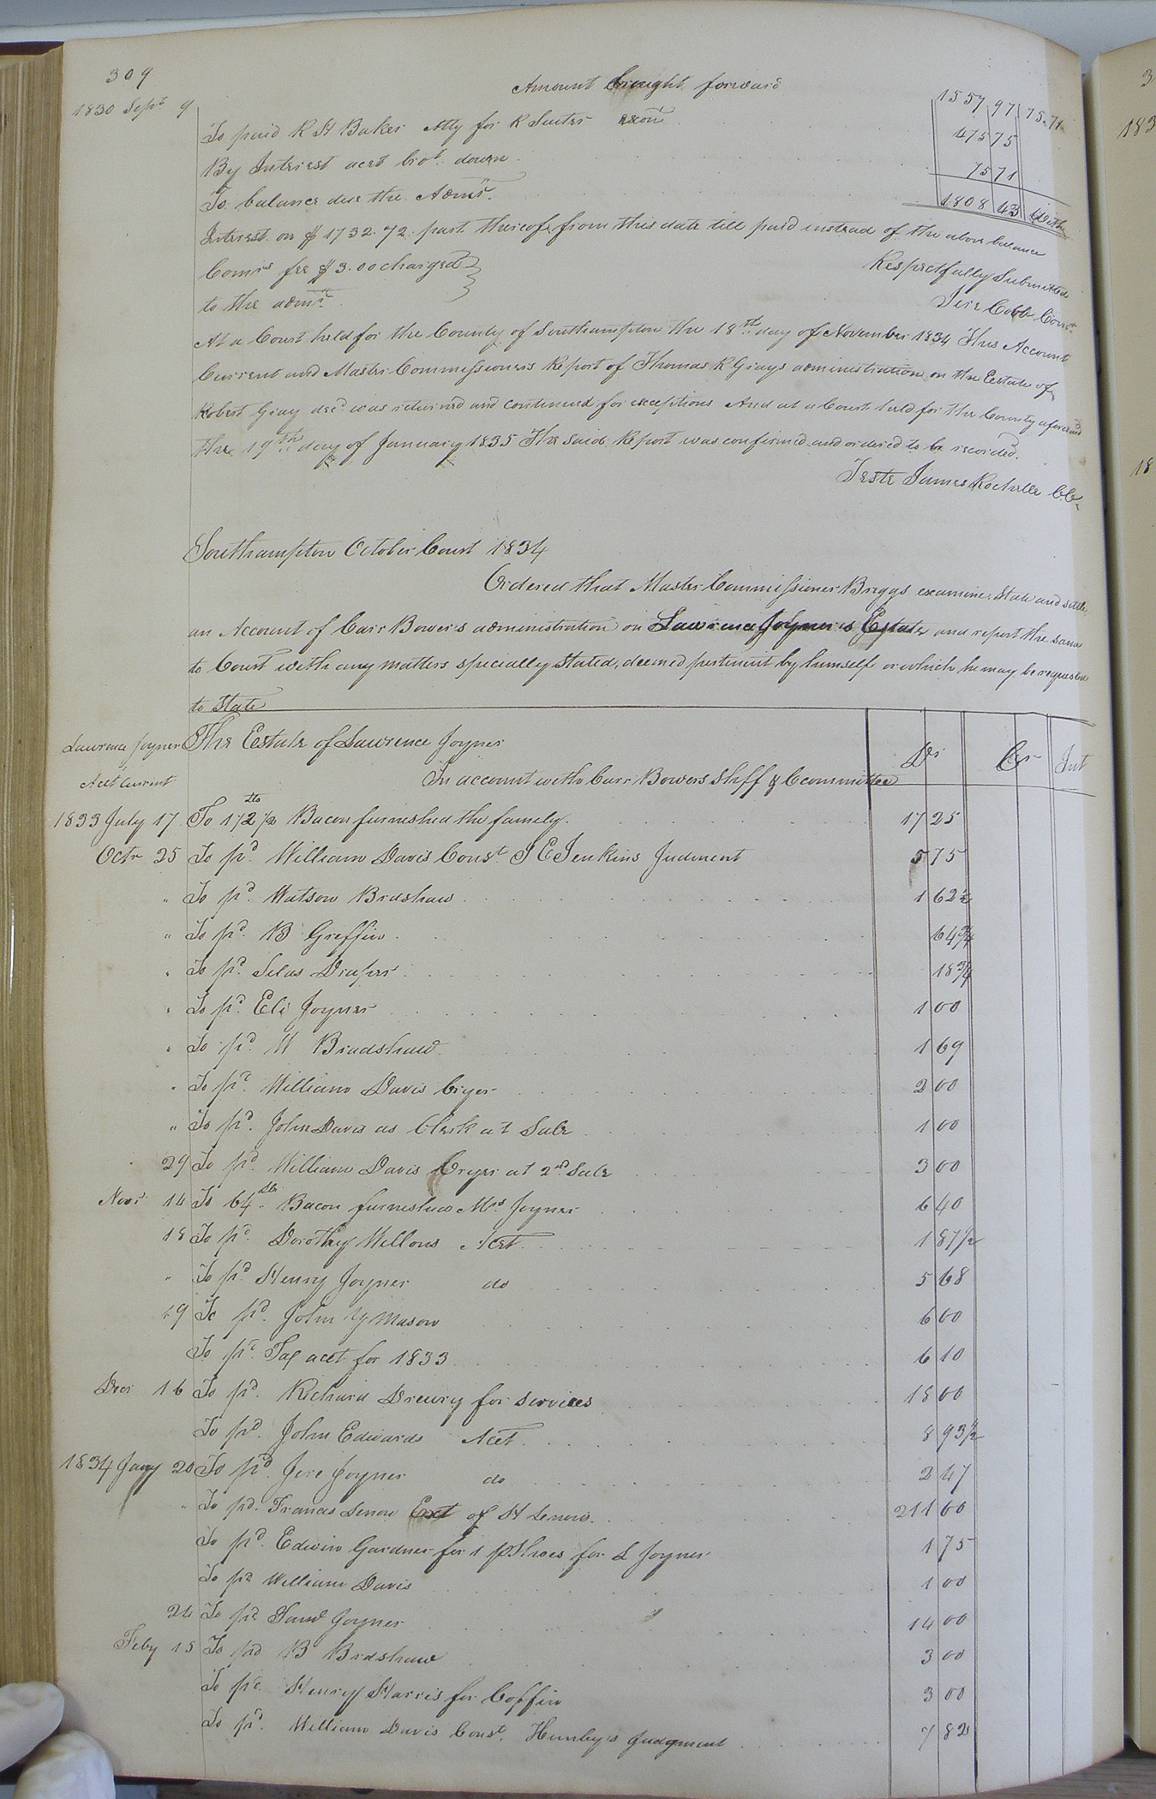 309
Amount brought forward 1557 97 75.71
1830 Sept 9 To paid R H Baker Atty for R Suter exor 475 75
By Interest acct brot down 75 71
To balance due the Admr. 1808 43 With
Interest on $1732.72 part thereof from this date till paid instead of the above balance
Comrs fee $3.00 charged Respectfully Submitted
to the admr. Jere Cobb Comr
At a Court held for the County of Southampton the 18th day of November 1834 This Account
Current and Master Commissioners Report of Thomas R Grays administration on the Estate of
Robert Gray decd was returned and continued for exceptions And at a Court held for the County aforesaid
the 19th day of January 1835 The said Report was confirmed and ordered to be recorded.
Teste James Rochelle CC
Southampton October Court 1834
Ordered that Master Commissioner Briggs examine, State and settle
an Account of Carr Bowers administration on Lawrence Joyner's Estate and report the same
to Court with any matters specially stated, deemed pertinent by himself or which he may be requested
to State
Lawrence Joyner The Estate of Lawrence Joyner Dr Cr Int
Acct Current In account with Carr Bowers Shff & Ccommittee
1833 July 17 To 172 1/2 lbs Bacon furnished the family 17 25
Octr 25 To pd. William Davis Const J E Jenkins Judment 5 75
" To pd. Watson Bradshaw 1 62 1/2
" To pd. B Greffin 64 3/4
" To pd. Silas Draper 18 3/4
" To pd. Eli Joyner 1 00
" To pd. H Bradshaw 1 69
" To pd. William Davis Cryer 2 00
" To pd. John Davis as Clerk at Sale 1 00
29 To pd. William Davis Cryer at 2nd Sale 3 00
Novr 14 To 64 lbs Bacon furnished Mrs Joyner 6 40
18 To pd. Dorothy Wellons Acct 1 87 1/2
" To pd Henry Joyner do 5 68
19 To pd. John Y Mason 6 00
To pd. Tax acct for 1833 6 10
Decr 16 To pd. Richard Drewry for Services 18 00
To pd. John Edwards Acct 8 93 1/2
1834 Jany 20 To pd. Jere Joyner do 2 47
" To pd. Francis Lenow Ext of H Lenow 211 00
To pd. Edwin Gardner for 1 p Shoes for L Joyner 1 75
To pd William Davis 1 00
24 To pd Saml Joyner 14 00
Feby 15 To pd B Bradshaw 3 00
To pd. Henry Harris for Coffin 3 00
To pd. William Davis Const. Hunley's Judgment 7 82